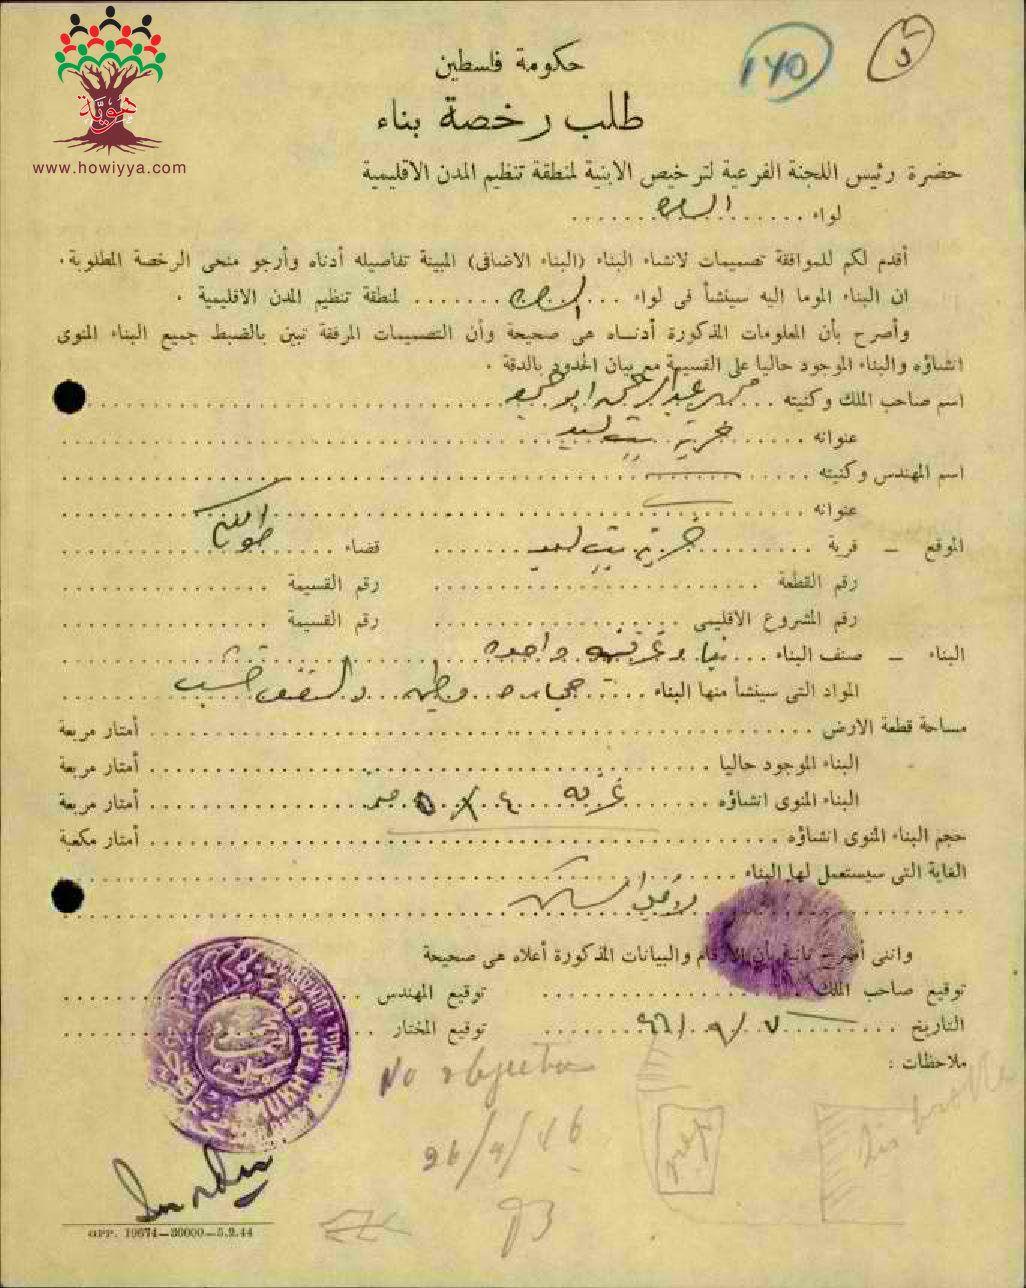 هوية
www.howiyya.com
١٧٥
حكومة فلسطين
طلب رخصة بناء
حضرة رئيس اللجنة الفرعية لترخيص الابنية لمنطقة تنظيم المدن الاقليمية
لواء السامرة
أقدم لكم للموافقة تصميمات لانشاء البناء (البناء الاضافى) المبينة تفاصيله أدناه وأرجو منحى الرخصة المطلوبة.
ان البناء الموما اليه سينشأ فى لواء السامرة لمنطقة تنظيم المدن الاقليمية.
وأصرح بأن المعلومات المذكورة أدناه هى صحيحة وأن التصميمات المرفقة تبين بالضبط جميع البناء المنوى
انشاؤه والبناء الموجود حاليا على القسيمة مع بيان الحدود بالدقة.
اسم صاحب الملك وكنيته عبد الرحمن ابو
عنوانه خربة بيت ليد
اسم المهندس وكنيته
عنوانه
الموقع - قرية خربة بيت ليد قضاء طولكرم
رقم القطعة رقم القسيمة
رقم المشروع الاقليمى رقم القسيمة
البناء - صنف البناء واحده
المواد التى سينشأ منها البناء حجاره وطين والسقف خشب
مساحة قطعة الارض أمتار مربعة
البناء الموجود حاليا أمتار مربعة
البناء المنوى انشاؤه غرفه ٤ × ٥ أمتار مربعة
حجم البناء المنوى انشاؤه أمتار مكعبة
الغاية التى سيستعمل لها البناء
لاجل السكن
واننى أصرح ثانية بأن الارقام والبيانات المذكورة أعلاه هى صحيحة
توقيع صاحب الملك توقيع المهندس
التاريخ ٧/٩/٤٦ توقيع المختار
ملاحظات :
MUKHTAR OF
No objection
26/9/46
GPP. 10674—30000—5.9.44